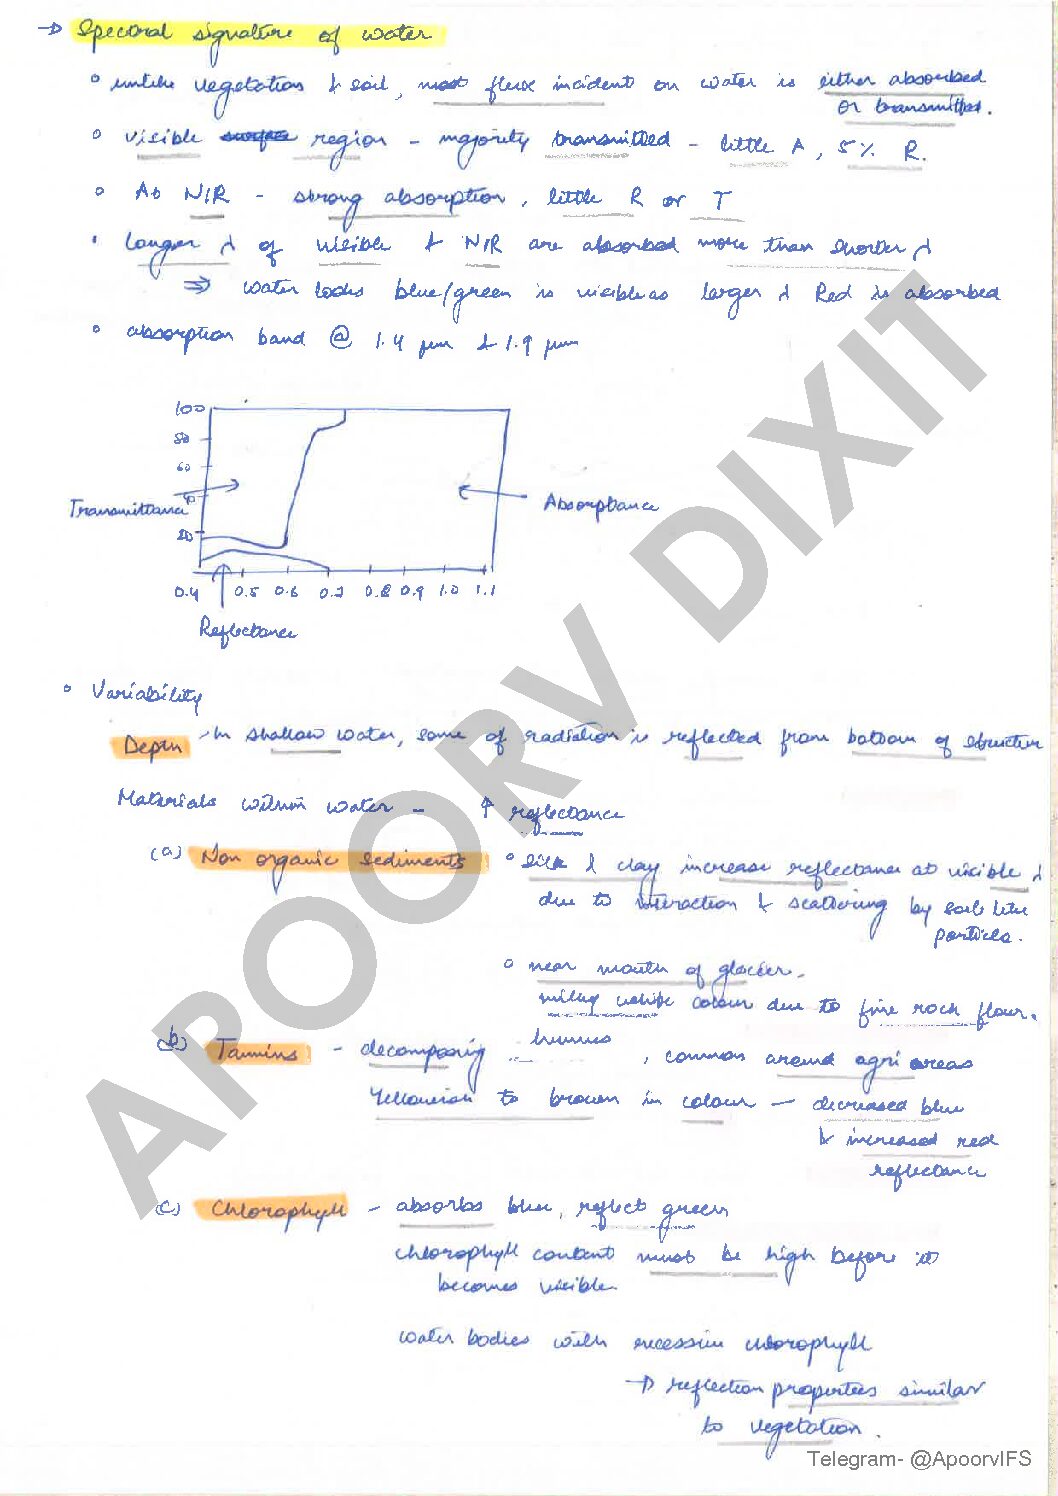 → Spectral signature of water
° unlike vegetation & soil, most flux incident on water is either absorbed
or transmitted.
° visible region - majority transmitted - little A, 5% R.
° At NIR - strong absorption, little R or T
• Longer λ of visible & NIR are absorbed more than shorter λ
⇒ water looks blue/green in visible as larger λ Red is absorbed
° absorption band @ 1.4 μm & 1.9 μm
100
80
60
40
Transmittance
Absorptance
20
0.4 0.5 0.6 0.7 0.8 0.9 1.0 1.1
Reflectance
° Variability
Depth - In shallow water, some of radiation is reflected from bottom of structure
Materials within water - ↑ reflectance
(a) Non organic sediments ° silt & clay increase reflectance at visible λ
due to interaction & scattering by soil like
particles.
° near mouth of glacier.
milky white colour due to fine rock flour.
(b) Tannins - decomposing humus, common around agri areas
Yellowish to brown in colour - decreased blue
& increased red
reflectance
(c) Chlorophyll - absorbs blue, reflect green
chlorophyll content must be high before it
becomes visible.
water bodies with excessive chlorophyll
→ reflection properties similar
to vegetation.
APOORV DIXIT
Telegram- @ApoorvIFS